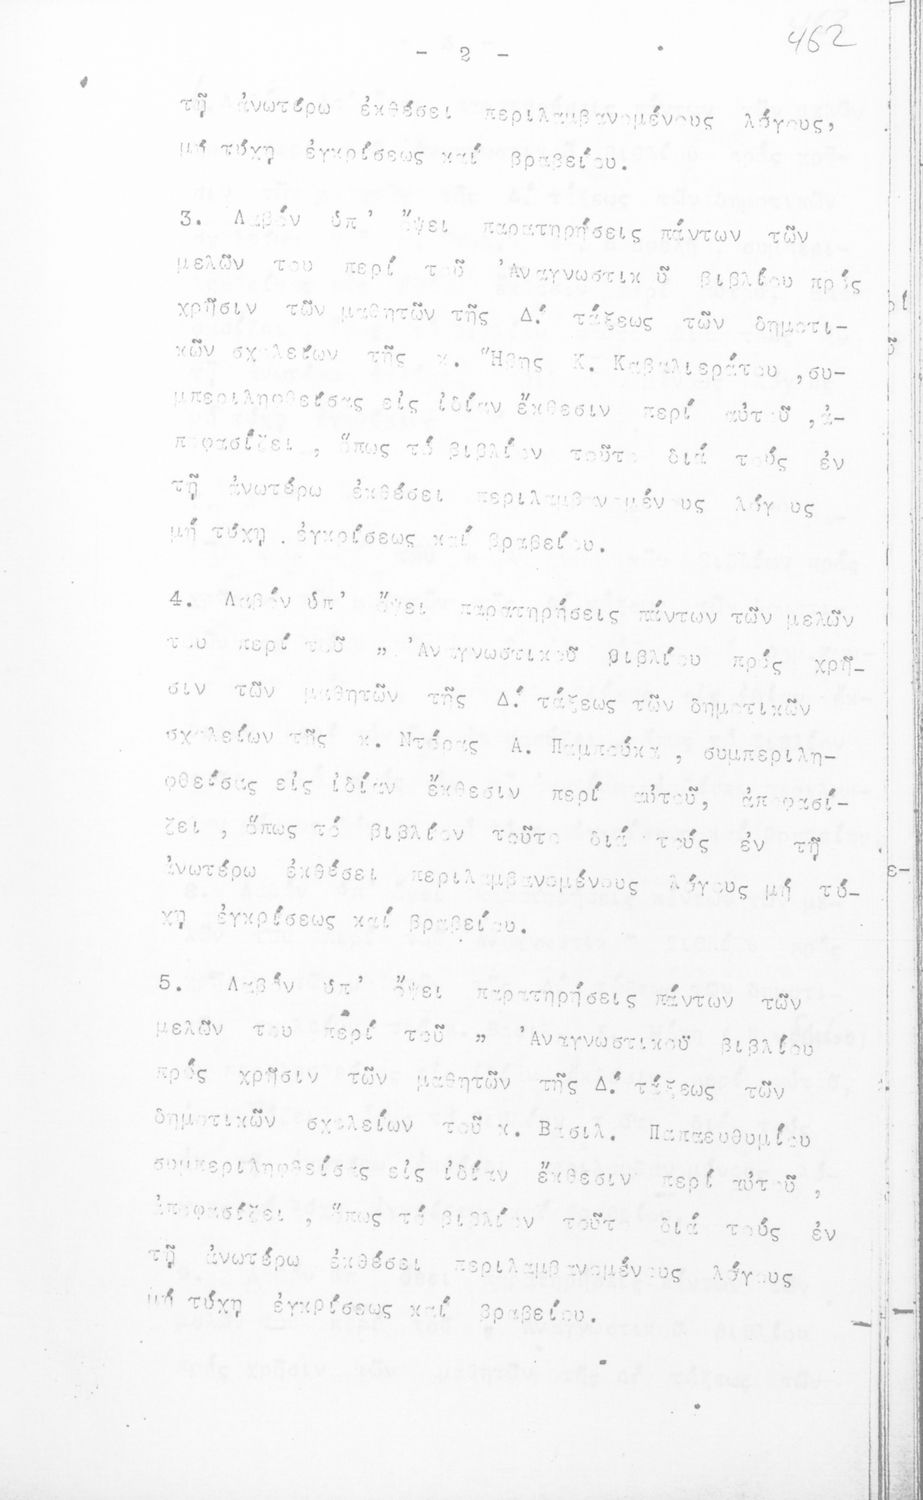 462
- 2 -
τῇ ἀνωτέρω ἐκθέσει περιλαμβανομένους λόγους,
μή τύχῃ ἐγκρίσεως καί βραβείου.
3. Λαβόν ὑπ' ὄψει παρατηρήσεις πάντων τῶν
μελῶν του περί τοῦ 'Αναγνωστικοῦ βιβλίου πρός
χρῆσιν τῶν μαθητῶν τῆς Δ! τάξεως τῶν δημοτι-
κῶν σχολείων τῆς κ. Ἥβης Κ. Καβαλιεράτου ,συ-
μπεριληφθείσας εἰς ἰδίαν ἔκθεσιν περί αὐτοῦ ,ἀ-
ποφασίζει , ὅπως τό βιβλίον τοῦτο διά τούς ἐν
τῇ ἀνωτέρω ἐκθέσει περιλαμβανομένους λόγους
μή τύχῃ . ἐγκρίσεως καί βραβείου.
4. Λαβόν ὑπ' ὄψει παρατηρήσεις πάντων τῶν μελῶν
του περί τοῦ " 'Αναγνωστικοῦ βιβλίου πρός χρῆ-
σιν τῶν μαθητῶν τῆς Δ! τάξεως τῶν δημοτικῶν
σχολείων τῆς κ. Ντόρας Α. Παμπούκα , συμπεριλη-
φθείσας εἰς ἰδίαν ἔκθεσιν περί αὐτοῦ, ἀποφασί-
ζει , ὅπως τό βιβλίον τοῦτο διά τούς ἐν τῇ
ἀνωτέρω ἐκθέσει περιλαμβανομένους λόγους μή τύ-
χῃ ἐγκρίσεως καί βραβείου.
5. Λαβόν ὑπ' ὄψει παρατηρήσεις πάντων τῶν
μελῶν του περί τοῦ " 'Αναγνωστικοῦ βιβλίου
πρός χρῆσιν τῶν μαθητῶν τῆς Δ! τάξεως τῶν
δημοτικῶν σχολείων τοῦ κ. Βασιλ. Παπαευθυμίου
συμπεριληφθείσας εἰς ἰδίαν ἔκθεσιν περί αὐτοῦ ,
ἀποφασίζει , ὅπως τό βιβλίον τοῦτο διά τούς ἐν
τῇ ἀνωτέρω ἐκθέσει περιλαμβανομένους λόγους
μή τύχῃ ἐγκρίσεως καί βραβείου.